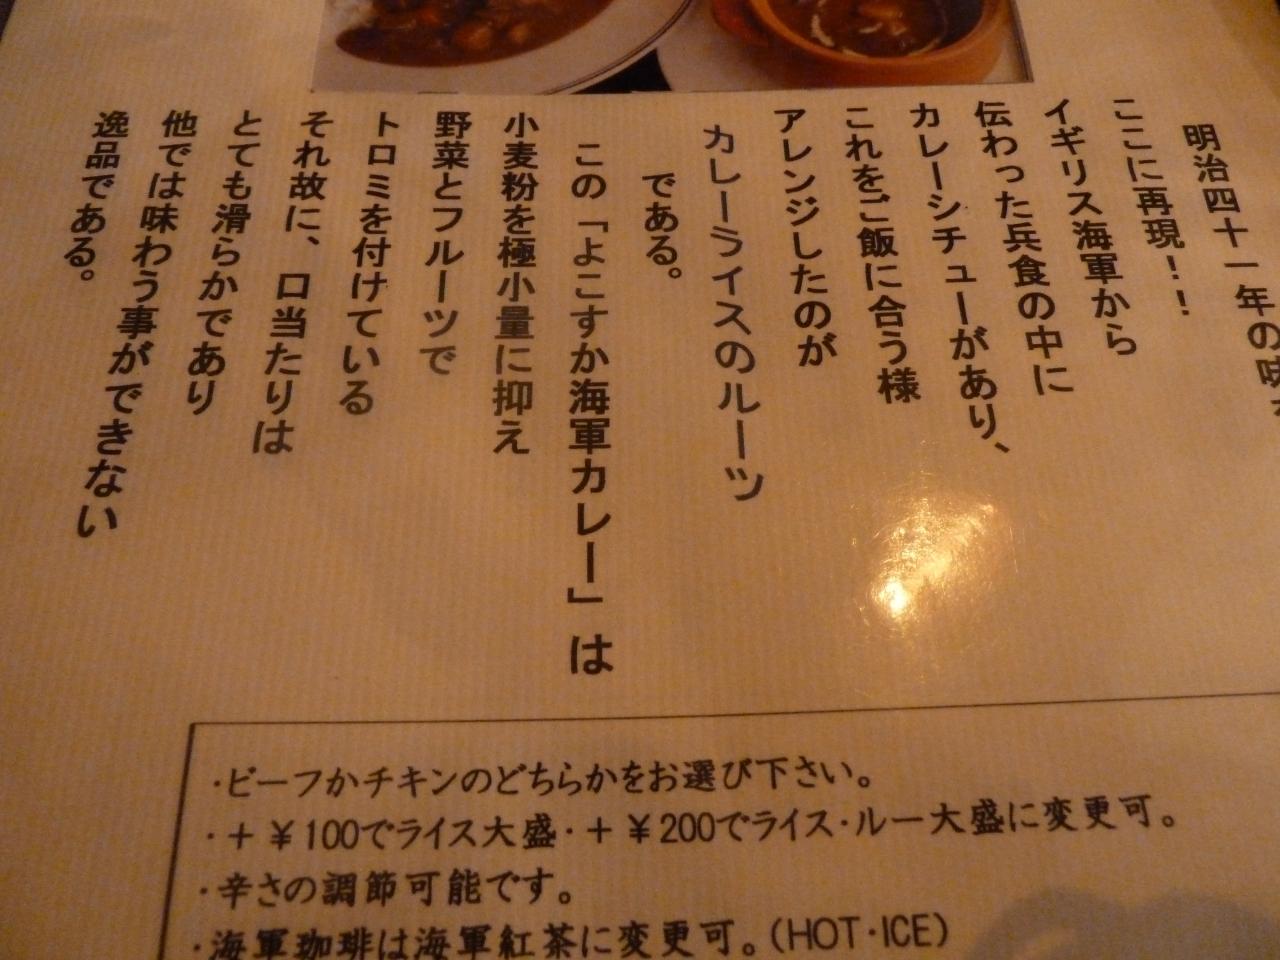 明治四十一年の味を
ここに再現！！
イギリス海軍から
伝わった兵食の中に
カレーシチューがあり、
これをご飯に合う様
アレンジしたのが
カレーライスのルーツ
である。
この「よこすか海軍カレー」は
小麦粉を極小量に抑え
野菜とフルーツで
トロミを付けている
それ故に、口当たりは
とても滑らかであり
他では味わう事ができない
逸品である。
・ビーフかチキンのどちらかをお選び下さい。
・＋￥100でライス大盛・＋￥200でライス・ルー大盛に変更可。
・辛さの調節可能です。
・海軍珈琲は海軍紅茶に変更可。(HOT・ICE)